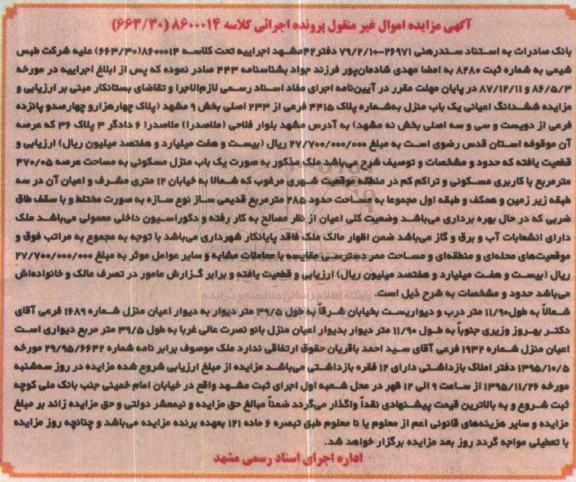 آگهی مزایده اموال غیر منقول پرونده اجرائی کلاسه ۸۶۰۰۰۱۴ (۶۶۳/۳۰)
بانک صادرات به استناد سندرهنی ۲۶۹۷۱-۷۹/۲/۱۰ دفتر۴۲مشهد اجراییه تحت کلاسه ۸۶۰۰۰۱۴(۶۶۳/۳۰) علیه شرکت طبس
شیمی به شماره ثبت ۸۲۸۰ به امضا مهدی شادمان‌پور فرزند جواد بشناسنامه ۴۴۳ صادر نموده که پس از ابلاغ اجراییه در مورخه
۸۶/۵/۳ و ۸۷/۱۲/۱۱ در پایان مهلت مقرر در آیین‌نامه اجرای مفاد اسناد رسمی لازم‌الاجرا و تقاضای بستانکار مبنی بر ارزیابی و
مزایده ششدانگ اعیانی یک باب منزل به‌شماره پلاک ۴۴۱۵ فرعی از ۲۳۳ اصلی بخش ۹ مشهد (پلاک چهارهزارو چهارصدو پانزده
فرعی از دویست و سی و سه اصلی بخش نه مشهد) به آدرس مشهد بلوار فلاحی (ملاصدرا) ملاصدرا ۶ دادگر ۳ پلاک ۳۶ که عرصه
آن موقوفه استان قدس رضوی است به مبلغ ۲۷/۷۰۰/۰۰۰/۰۰۰ ریال (بیست و هفت میلیارد و هفتصد میلیون ریال) ارزیابی و
قطعیت یافته که حدود و مشخصات و توصیف شرح می‌باشد ملک مذکور به صورت یک باب منزل مسکونی به مساحت عرصه ۴۷۰/۰۵
مترمربع با کاربری مسکونی و تراکم کم در منطقه موقعیت شهری مرغوب که شمالا به خیابان ۱۲ متری مشرف و اعیان آن در سه
طبقه زیر زمین و همکف و طبقه اول مجموعا به مساحت حدود ۲۸۵ مترمربع قدیمی ساز نوع سازه به صورت مختلط و با سقف طاق
ضربی که در حال بهره برداری می‌باشد وضعیت کلی اعیان از نظر مصالح به کار رفته و دکوراسیون داخلی معمولی می‌باشد ملک
دارای انشعابات آب و برق و گاز می‌باشد ضمن اظهار مالک ملک فاقد پایانکار شهرداری می‌باشد با توجه به مجموع به مراتب فوق و
موقعیت‌های محله‌ای و منطقه‌ای و مساحت ممر دسترسی مقایسه با معاملات مشابه و سایر عوامل موثر به مبلغ ۲۷/۷۰۰/۰۰۰/۰۰۰
ریال (بیست و هفت میلیارد و هفتصد میلیون ریال) ارزیابی و قطعیت یافته و برابر گزارش مامور در تصرف مالک و خانواده‌اش
می‌باشد حدود و مشخصات به شرح ذیل است.
شمالاً به طول۱۱/۹۰ متر درب و دیواریست بخیابان شرقاً به طول ۳۹/۵ متر دیوار به دیوار اعیان منزل شماره ۱۶۸۹ فرعی آقای
دکتر بهروز وزیری جنوباً به طول ۱۱/۹۰ متر دیوار بدیوار اعیان منزل بانو نصرت عالی غربا به طول ۳۹/۵ متر مربع دیواری است
اعیان منزل شماره ۱۹۳۲ فرعی آقای سید احمد باقریان حقوق ارتفاقی ندارد ملک موصوف برابر نامه شماره ۲۹/۹۵/۶۶۳۲ مورخه
۱۳۹۵/۱۰/۵ دفتر املاک بازداشتی دارای ۱۲ فقره بازداشتی می‌باشد مزایده از مبلغ ارزیابی شروع شده مزایده در روز سه‌شنبه
مورخه ۱۳۹۵/۱۱/۲۶ از ساعت ۹ الی ۱۲ ظهر در محل شعبه اول اجرای ثبت مشهد واقع در خیابان امام خمینی جنب بانک ملی کوچه
ثبت شروع و به بالاترین قیمت پیشنهادی نقداً واگذار می‌گردد ضمناً مبالغ حق مزایده و نیمعشر دولتی و حق مزایده زائد بر مبلغ
مزایده و سایر هزینه‌های قانونی اعم از معلوم یا نا معلوم طبق تبصره ۶ ماده ۱۲۱ بعهده برنده مزایده می‌باشد و چنانچه روز مزایده
با تعطیلی مواجه گردد روز بعد مزایده برگزار خواهد شد.
اداره اجرای اسناد رسمی مشهد